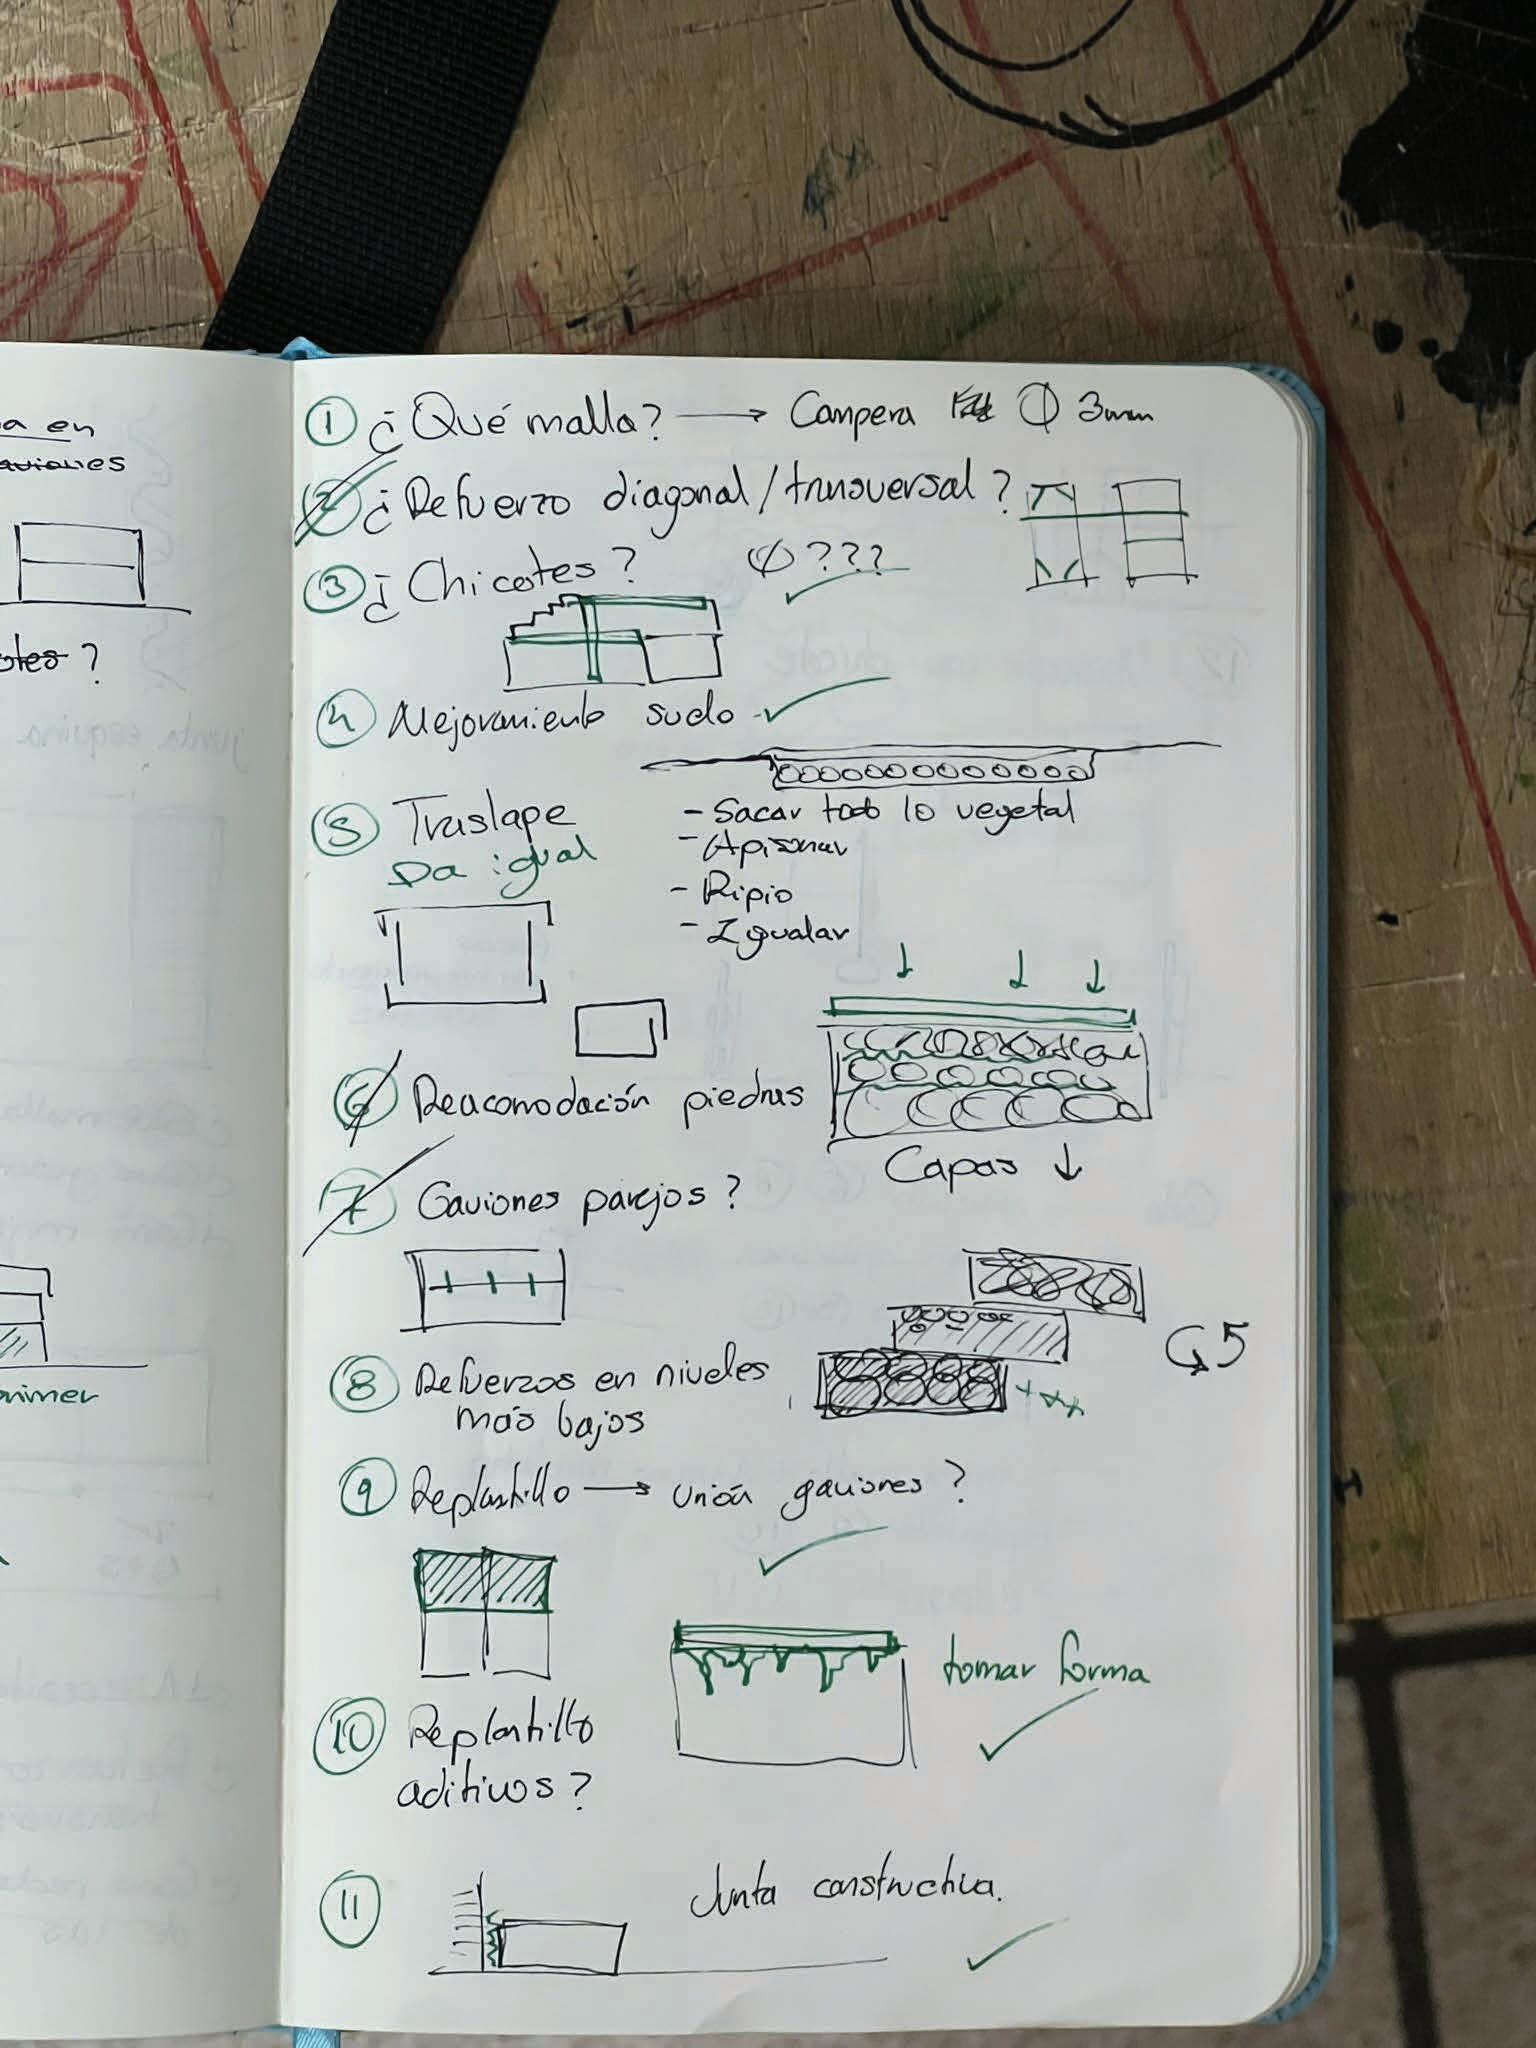 a en
aviones
otes ?
primer
1 ¿Qué malla? → Campera ∅ 3mm
2 ¿Refuerzo diagonal/transversal?
3 ¿Chicotes? ∅???
4 Mejoramiento suelo
- Sacar todo lo vegetal
- Apisonar
- Ripio
- Igualar
5 Traslape
Da igual
6 Reacomodación piedras
Capas ↓
7 Gaviones parejos?
8 Refuerzos en niveles
más bajos
5
9 Replantillo → unión gaviones?
tomar forma
10 Replantillo
aditivos?
11 Junta constructiva.